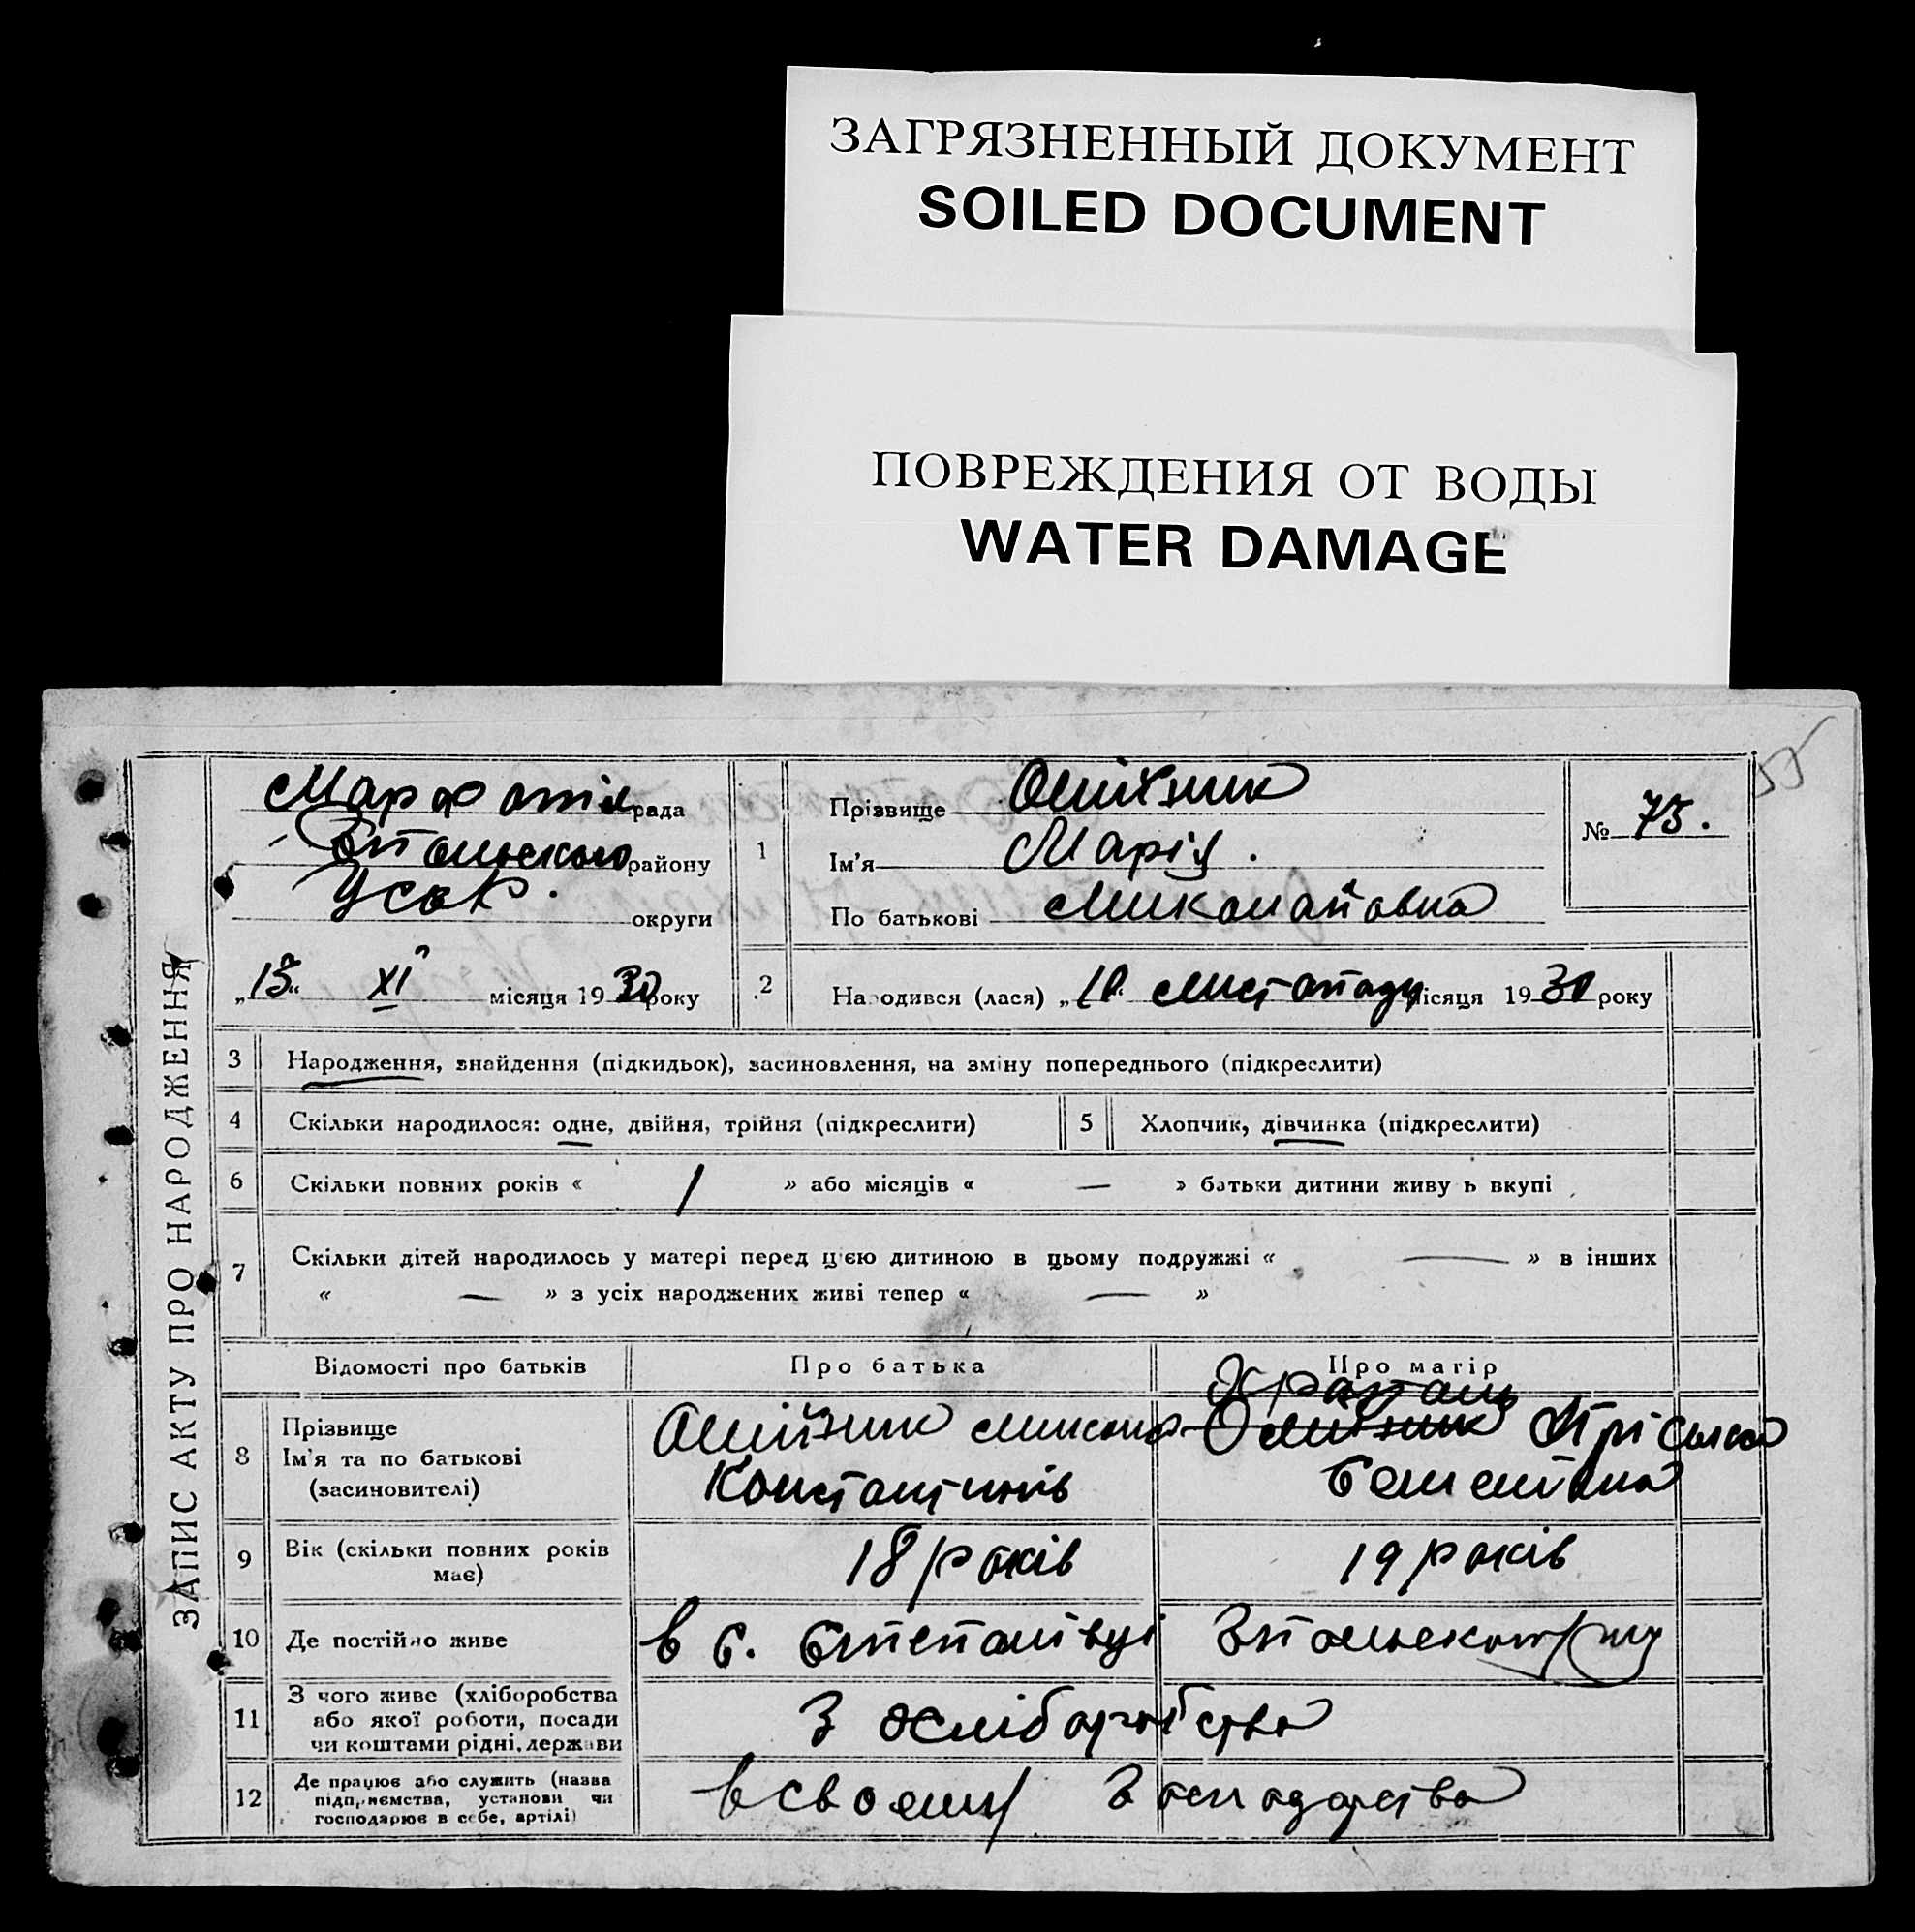 ЗАГРЯЗНЕННЫЙ ДОКУМЕНТ
SOILED DOCUMENT
ПОВРЕЖДЕНИЯ ОТ ВОДЫ
WATER DAMAGE
55
ЗАПИС АКТУ ПРО НАРОДЖЕННЯ
рада
району
округи
„15“ XI місяця 1930 року
1
Прізвище Олійник
Ім'я Марія.
По батькові Миколайовна
№ 75.
2
Народився (лася) „10“ листопаду місяця 1930 року
3 Народження, знайдення (підкидьок), засиновлення, на зміну попереднього (підкреслити)
4 Скільки народилося: одне, двійня, трійня (підкреслити) 5 Хлопчик, дівчинка (підкреслити)
6 Скільки повних років « 1 » або місяців « — » батьки дитини живу ь вкупі
7 Скільки дітей народилось у матері перед цією дитиною в цьому подружжі « — » в інших
« — » з усіх народжених живі тепер « — »
Відомості про батьків Про батька Про матір
8 Прізвище
Ім'я та по батькові
(засиновителі)
Олійник Микола
Константинів
Олійник Пріська
9 Вік (скільки повних років
має)
18 років 19 років
10 Де постійно живе в с. Степанівці
11 З чого живе (хліборобства
або якої роботи, посади
чи коштами рідні, держави
З хліборобства
12 Де працює або служить (назва
підприємства, установи чи
господарює в себе, артілі)
в своєму